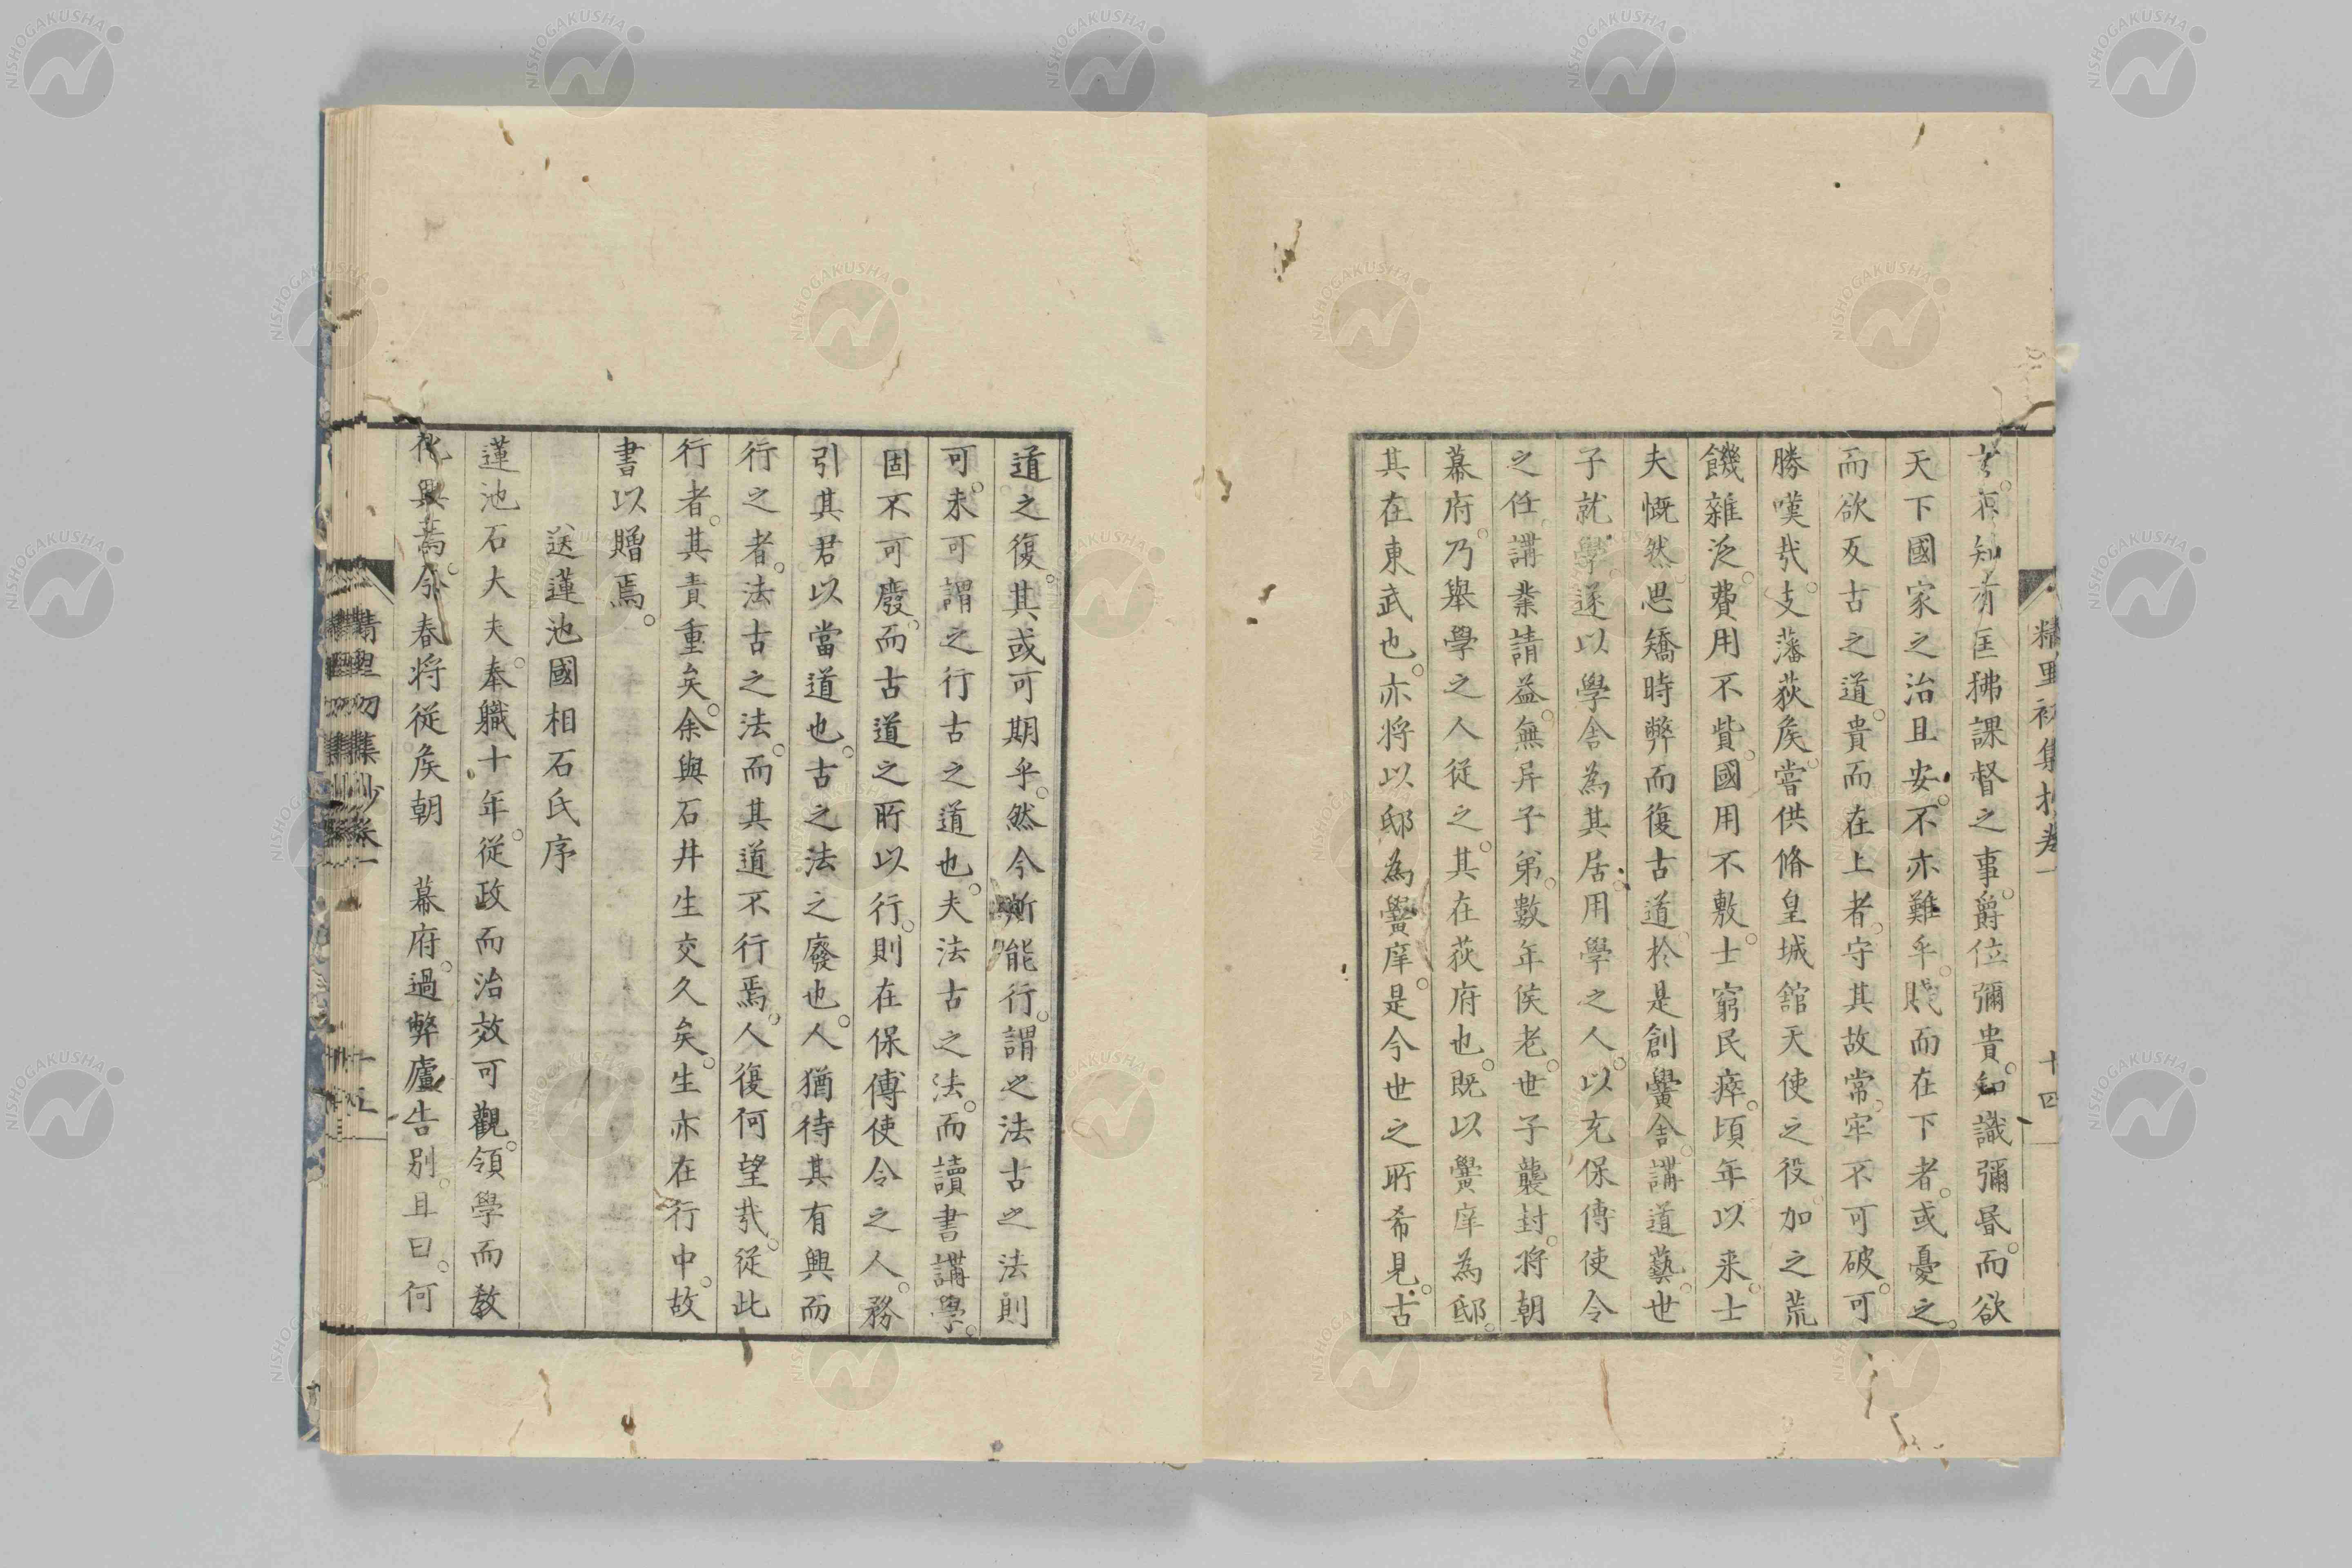 精里初集抄卷一 十四
知有匡拂課督之事。爵位彌貴。知識彌昬。而欲
天下國家之治且安。不亦難乎。賎而在下者。或憂之。
而欲反古之道。貴而在上者。守其故常。牢不可破。可
勝嘆哉。支藩荻矦。嘗供脩皇城舘天使之役。加之荒
饑雜泛。費用不貲。國用不敷。士窮民瘁。頃年以来。士
夫慨然思矯時弊而復古道。於是創黌舎。講道藝。世
子就學。遂以學舎為其居。用學之人。以充保傅使令
之任。講業請益。無异子弟。數年侯老。世子襲封。將朝
幕府。乃舉學之人從之。其在荻府也。既以黌庠為邸。
其在東武也。亦将以邸為黌庠。是今世之所希見。古
道之復。其或可期乎。然今斯能行。謂之法古之法則
可。未可謂之行古之道也。夫法古之法。而讀書講學。
固不可廢。而古道之所以行。則在保傅使令之人。務
引其君以當道也。古之法之廢也。人猶待其有興而
行之者。法古之法。而其道不行焉。人復何望哉。從此
行者。其責重矣。余與石井生交久矣。生亦在行中。故
書以贈焉。
送蓮池國相石氏序
蓮池石大夫。奉職十年。從政而治效可觀。領學而教
化興焉。今春将從矦朝 幕府。過弊廬告别。且曰。何
精里初集抄卷一 十五
NISHOGAKUSHA